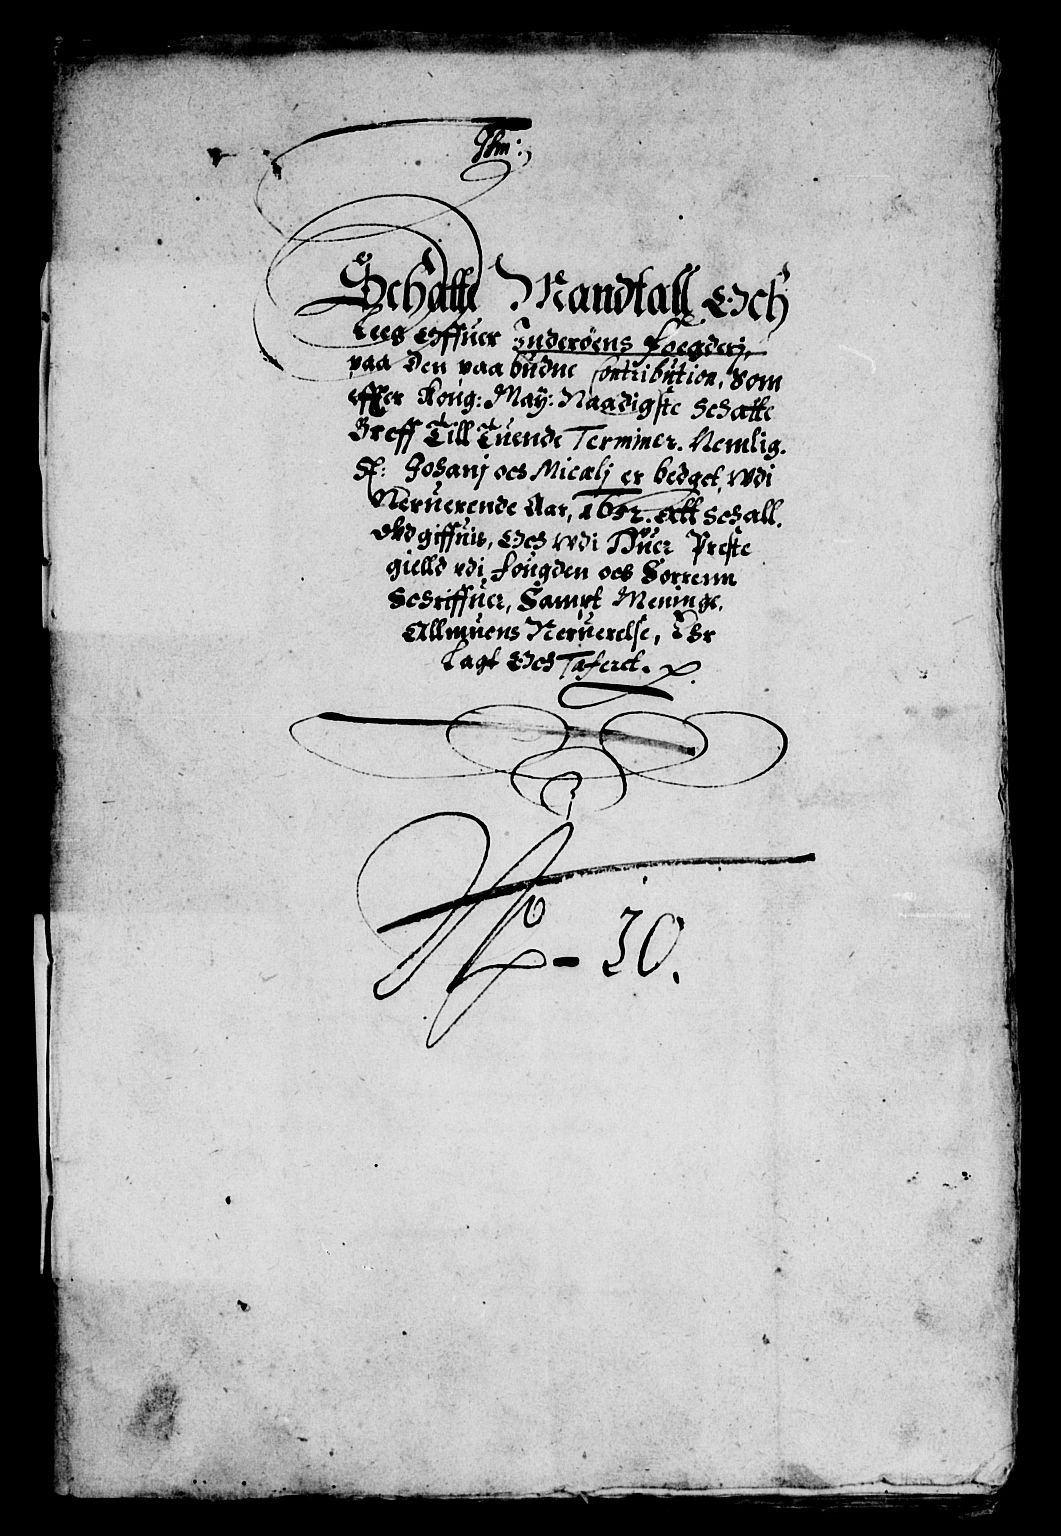 Schatte Mandtall Och
Leeg Offuer Inderøens Foegderj,
paa den paa budne Contribution, Som
effter Kong: May: Naadigste Schatte
Breff Till Tuende Terminer. Nemlig.
St: Johanj och Micælj er bedget, vdi
Neruerende Aar, 1632. att schall.
vdgiffuis, Och vdi Huer Preste
gielld vdi fougden och Sorrenn
Schriffuer, Sampt Meninge,
Allmuens Neruerelse, Er
Lagt Och Taxeret.
No - 30.